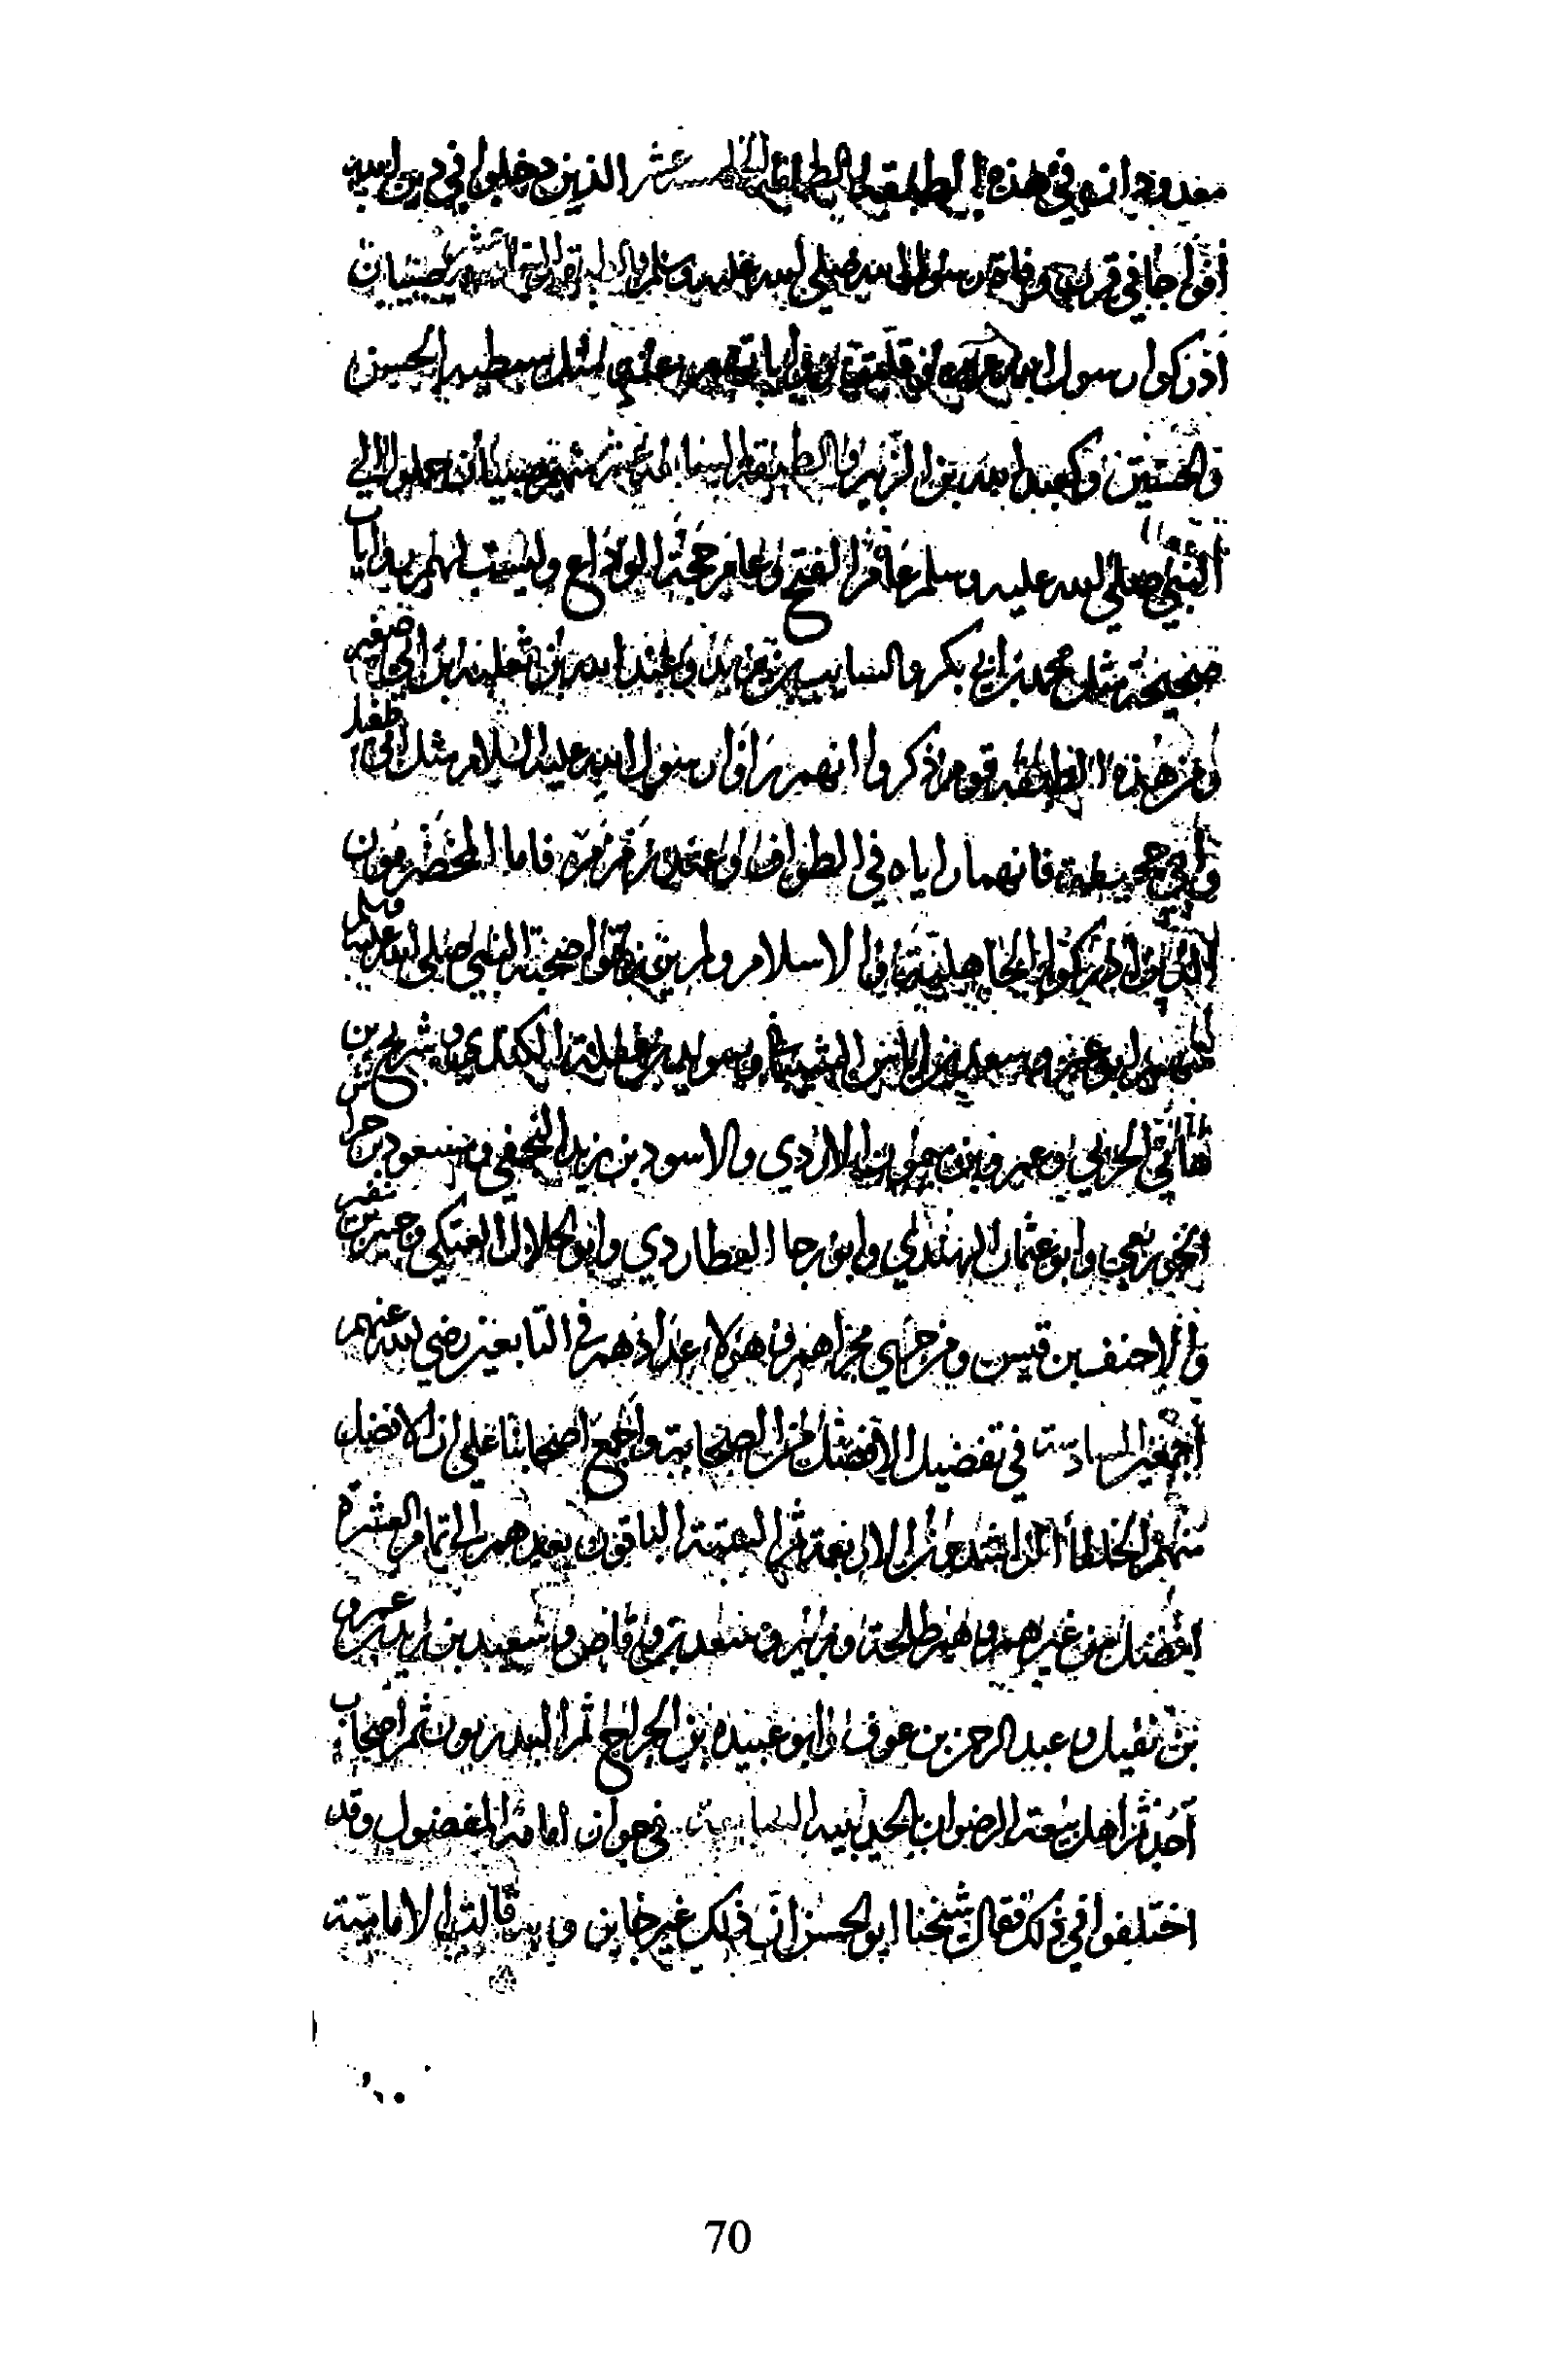 معدودا انه في هذه الطبقة الطبقة الخامسة عشر الذين دخلوا في دين الله
أفواجا في قرب وفاة رسول الله صلى الله عليه وسلم والطبقة السادسة عشر صبيان
أدركوا رسول الله عليه روايات عنه مثل سبطيه الحسن
والحسين وكعبد الله بن الزبير والطبقة السابعة عشر منهم صبيان حملوا الي
النبي صلى الله عليه وسلم عام الفتح وعام حجة الوداع وليست لهم روايات
صحيحة مثل محمد بن ابي بكر والسايب بن يزيد وعبد الله بن ثعلبة بن ابي صعير
ومن هذه الطبقة قوم ذكروا انهم راوا رسول الله عليه السلام مثل ابي طفيل
وابي جحيفة فانهما راياه في الطواف وعند زمزم فاما المخضرمون
الذين ادركوا الجاهلية والاسلام ولم يرزقوا صحبة النبي صلى الله عليه وسلم
فمنهم ابو عمرو سعد بن اياس الشيباني وسويد بن غفلة الكندي وشريح بن
هاني الحارثي وعمرو بن ميمون الاودي والاسود بن يزيد النخعي ومسعود بن حراش
وابو عثمان النهدي وابو رجا العطاردي وابو الحلال العتكي وجبير بن نفير
والاحنف بن قيس ومن جرى مجراهم فهؤلاء عدادهم في التابعين رضي الله عنهم
أجمعين السادسة في تفضيل الافضل من الصحابة واجمع اصحابنا على ان الافضل
منهم الخلفا الراشدون الاربعة ثم الستة الباقون بعدهم الى تمام العشرة
افضل من غيرهم وهم طلحة وزبير وسعد بن وقاص وسعيد بن زيد بن عمرو
بن نفيل وعبد الرحمن بن عوف وابو عبيدة بن الجراح ثم البدريون ثم اصحاب
أحد ثم اهل بيعة الرضوان بالحديبية السابعة في جواز امامة المفضول وقد
اختلفوا في ذلك فقال شيخنا ابو الحسن ان ذلك غير جايز وبه قالت الامامية
70